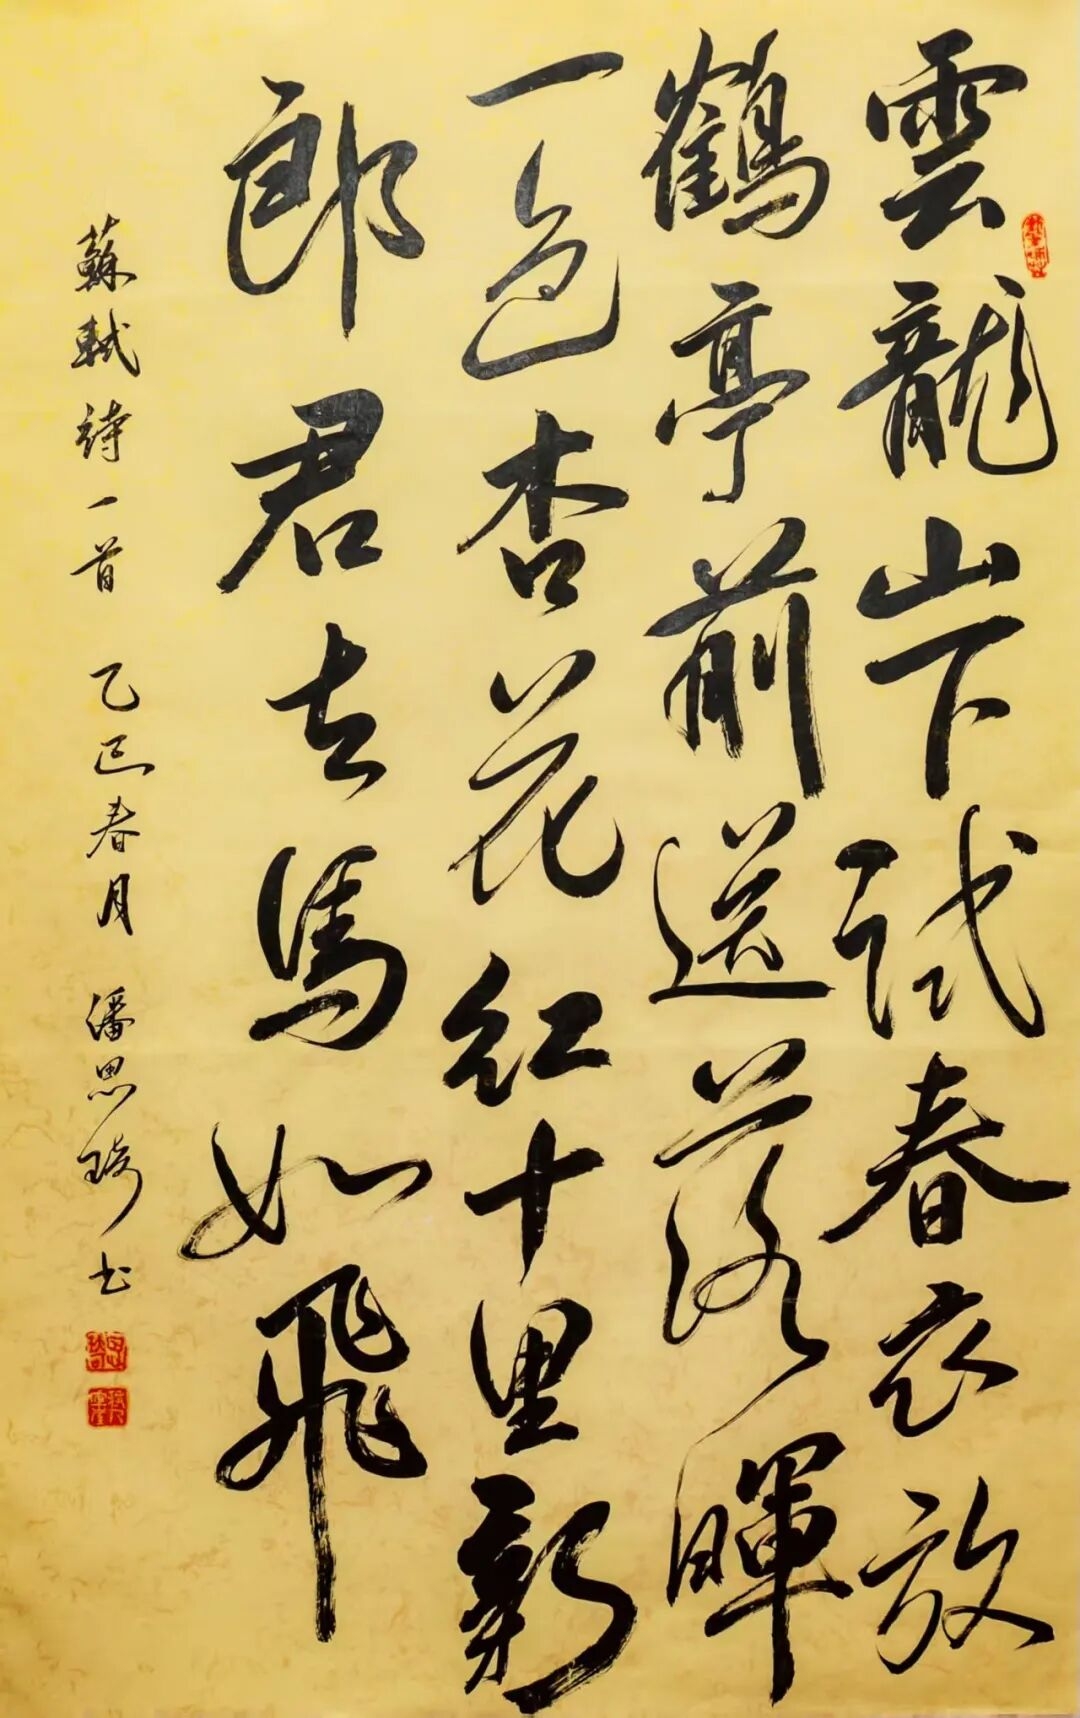 雲龍山下試春衣放
鶴亭前送落暉
一色杏花紅十里新
郎君去馬如飛
蘇軾詩一首 乙巳春月 潘思琦书